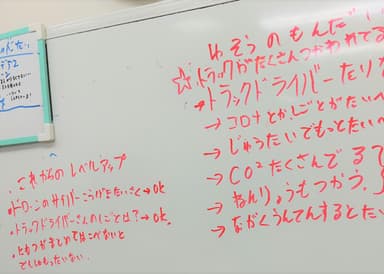 ゆそうのもんだい
☆トラックがたくさんつかわれてる
→トラックドライバーたりな
→コロナとかしごとがたいへ
→じゅうたいでもっとたいへ
→CO²たくさんでる
→ねんりょうもつかう。
→ながくうんてんするとた
これからのレベルアップ
・ドローンのサイバーこうげきたいさく→ok
・トラックドライバーさんのしごとは?→ok
・ともつがまとめてはこべないと
でしもったいない。